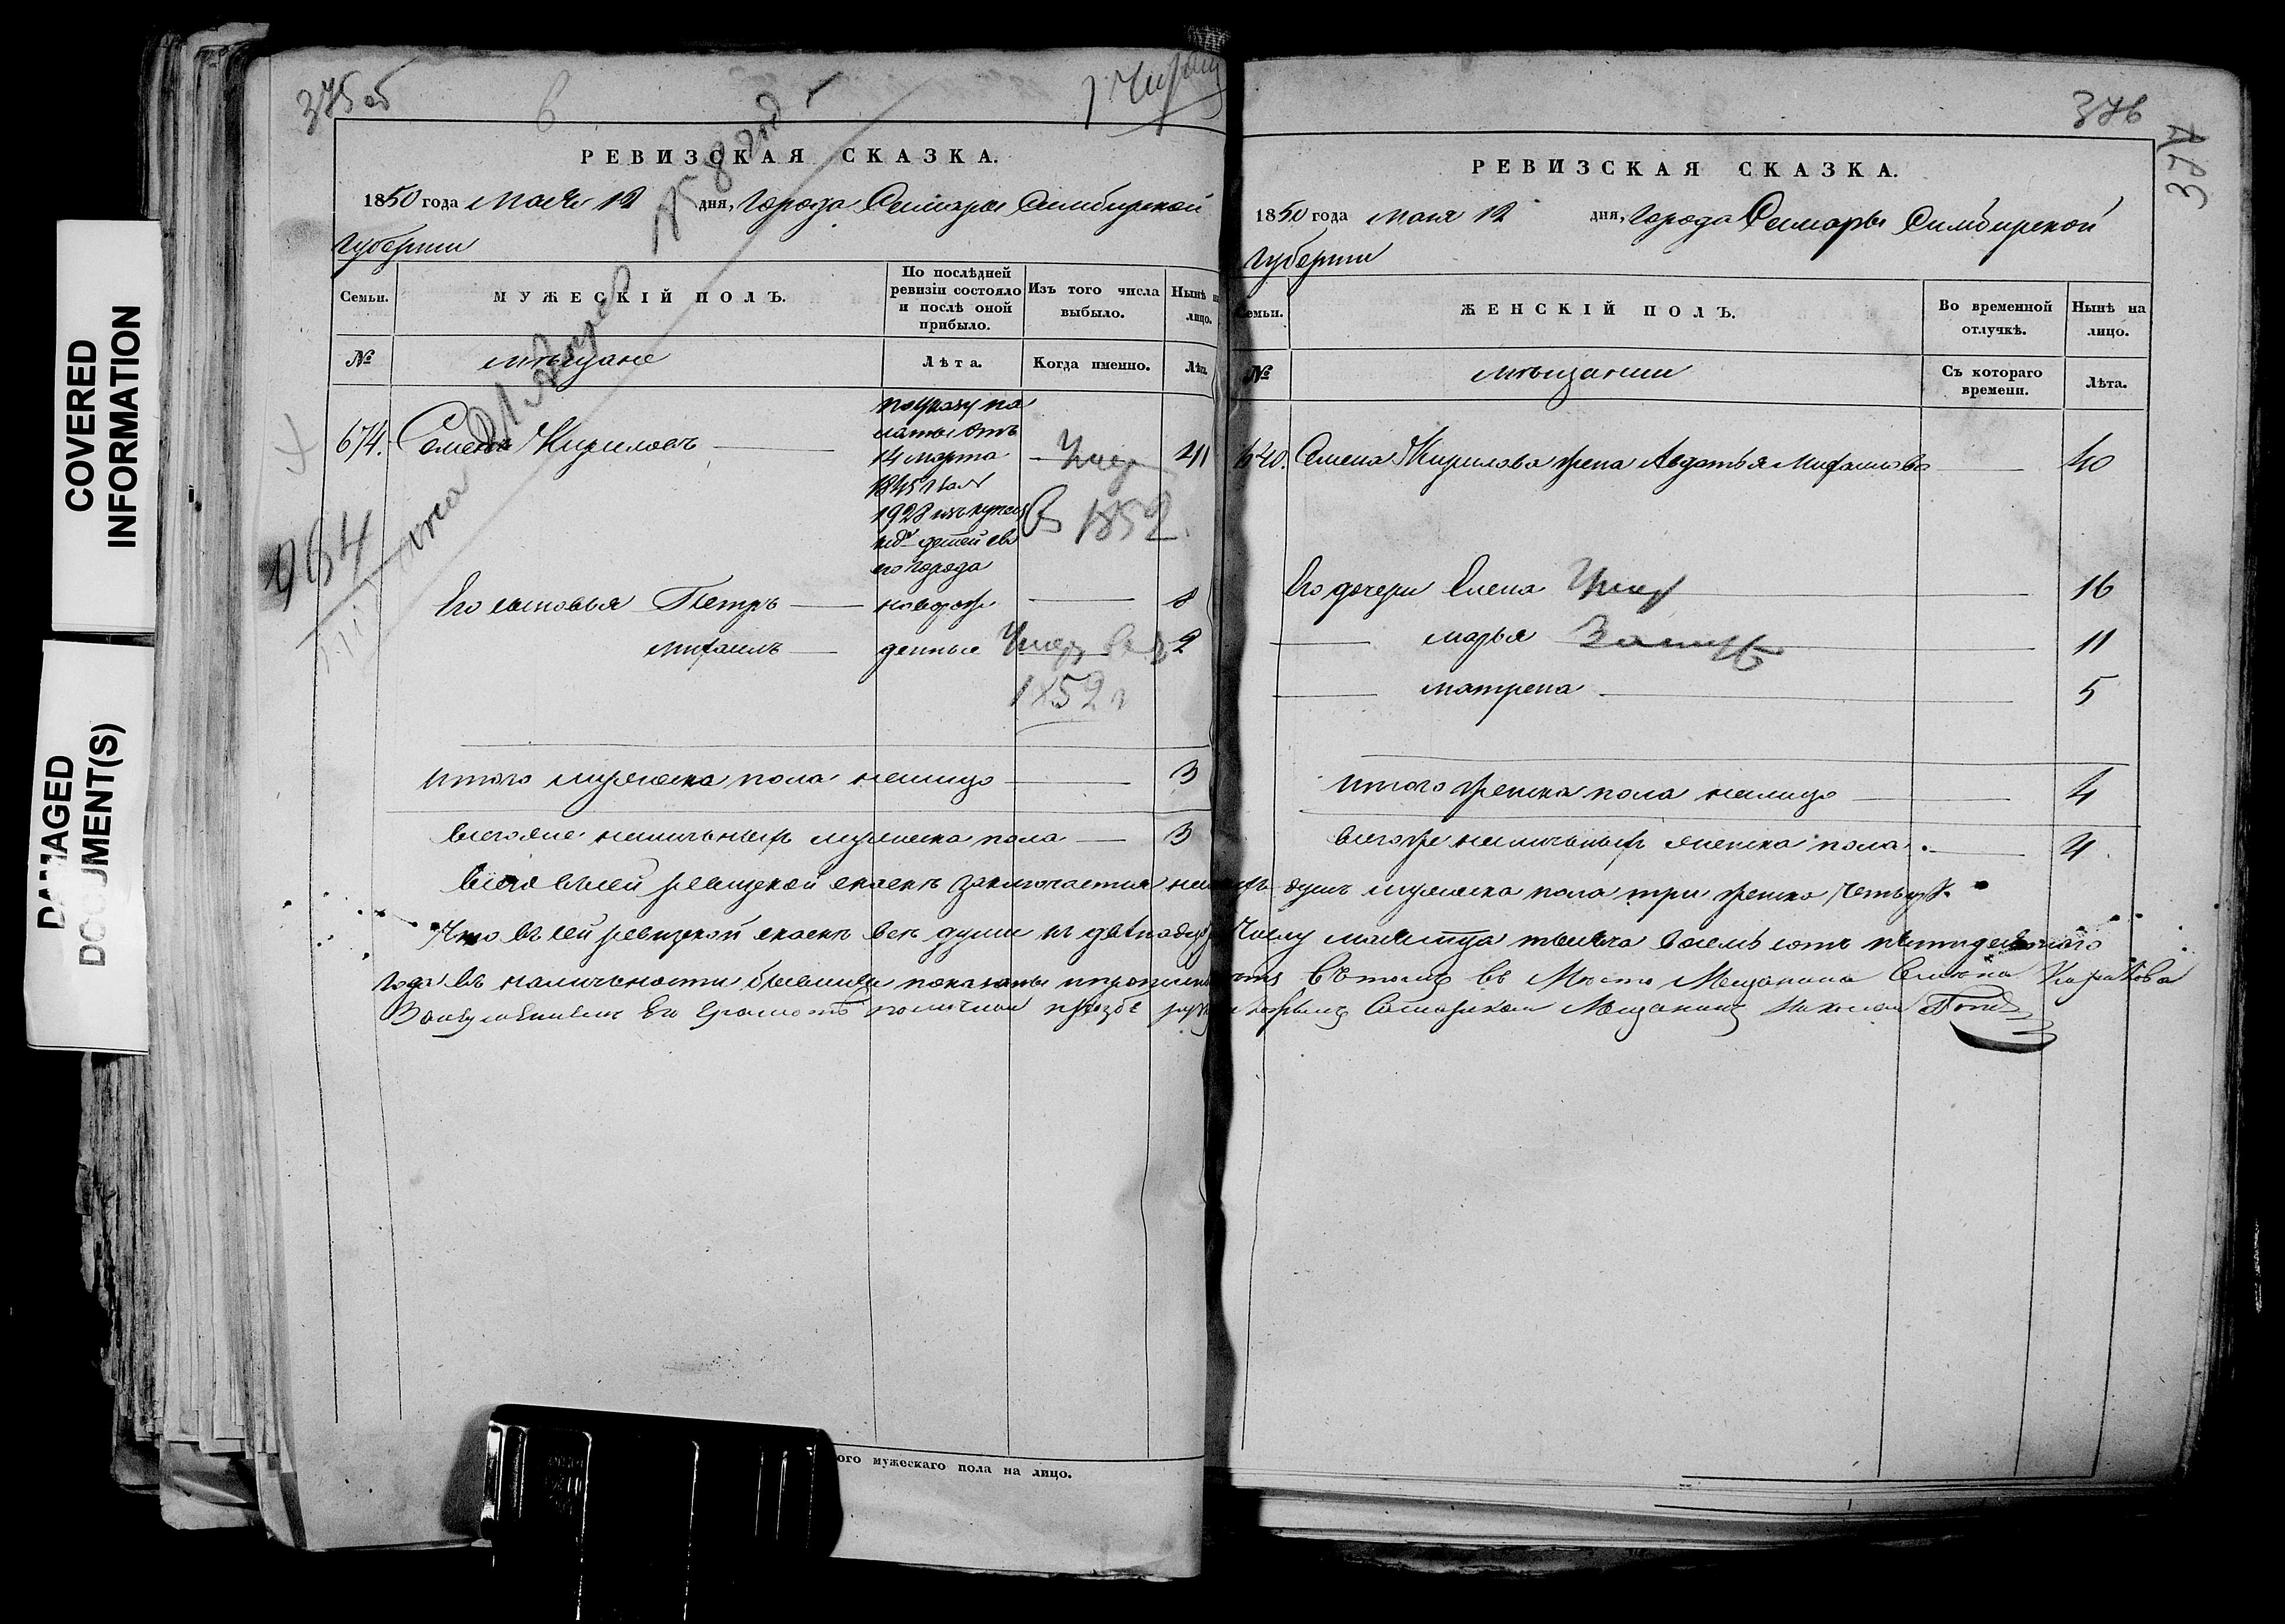 COVERED
INFORMATION
DAMAGED
DOCUMENT(S)
375 об
6
РЕВИЗСКАЯ СКАЗКА.
1850 года Мая 12 дня, Города Самары Симбирской
Губернии
Семьи.
МУЖЕСКІЙ ПОЛЪ.
По послѣдней
ревизіи состояло
и послѣ оной
прибыло.
Изъ того числа
выбыло.
Нынѣ н
лицо.
№
мѣщане
Лѣта.
Когда именно.
Лѣта.
674. Семенъ Кириловъ
по указу па
латы отъ
14 марта
1845 года
1928 изъ купец
детей сего города
Умер
в 1852
41
964
Его сыновья Петръ новорож 8
Михаилъ денные Умер в 2
1852 г
итого мужеска пола налицо 3
всего же наличныхъ мужеска пола 3
376
РЕВИЗСКАЯ СКАЗКА.
1850 года мая 12 дня, Города Самары Симбирской
Губернии
Семьи.
ЖЕНСКІЙ ПОЛЪ.
Во временной
отлучкѣ.
Нынѣ на
лицо.
№
мѣщанки
Съ котораго
времени.
Лѣта.
640. Семена Кирилова жена Авдотья Михайлова 40
Его дочери Елена Умер 16
марья Замуж 11
матрена 5
итого женска пола налицо 4
всего же наличныхъ женска пола 4
всего въ сей ревизской сказкѣ заключается душъ мужеска пола три женска четыре.
Что въ сей ревизской сказкѣ все души къ числу маия месяца тысяча восемь сотъ пятидесятого
года въ наличности бывшия показаны в том в место мещанина Семена Кирилова
его грамоте по личной прозбе Самарской Мещанин Николай
ого мужескаго пола на лицо.